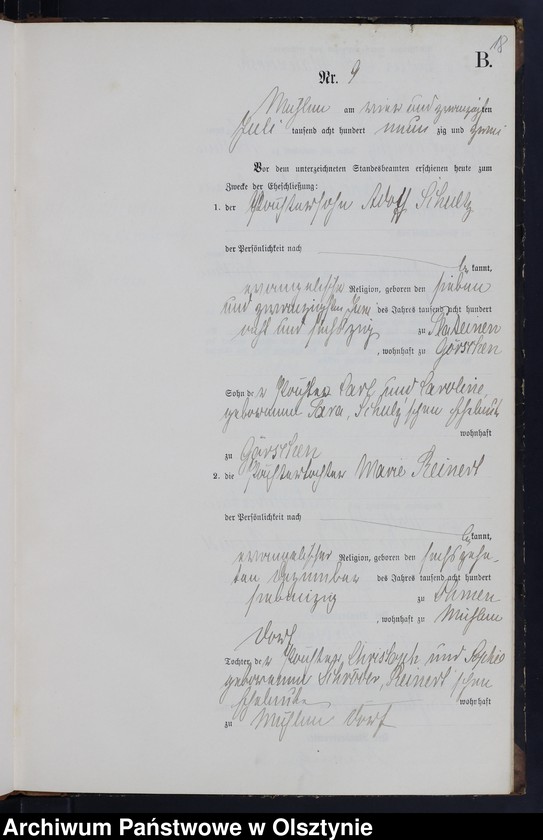 18
B.
Nr. 9
Mühlen am vier und zwanzigsten
Juli tausend acht hundert neun zig und zwei
Vor dem unterzeichneten Standesbeamten erschienen heute zum
Zwecke der Eheschließung:
1. der Pächtersohn Adolf Schultz
der Persönlichkeit nach
be kannt,
evangelischer Religion, geboren den sieben
und zwanzigsten Juni des Jahres tausend acht hundert
acht und sechszig zu
, wohnhaft zu Görschen
Sohn de r Pächter Carl und Caroline,
geborenen Schulz'schen Eheleute
wohnhaft
zu Görschen
2. die Pächtertochter Marie Reinert
der Persönlichkeit nach
be kannt,
evangelischer Religion, geboren den sechszehn-
ten Dezember des Jahres tausend acht hundert
siebenzig zu Döhlau
, wohnhaft zu Mühlen
Dorf
Tochter de r Pächter Christoph und Sophie
geborenen Schröder, Reinert'schen
Eheleute wohnhaft
zu Mühlen Dorf
Archiwum Państwowe w Olsztynie